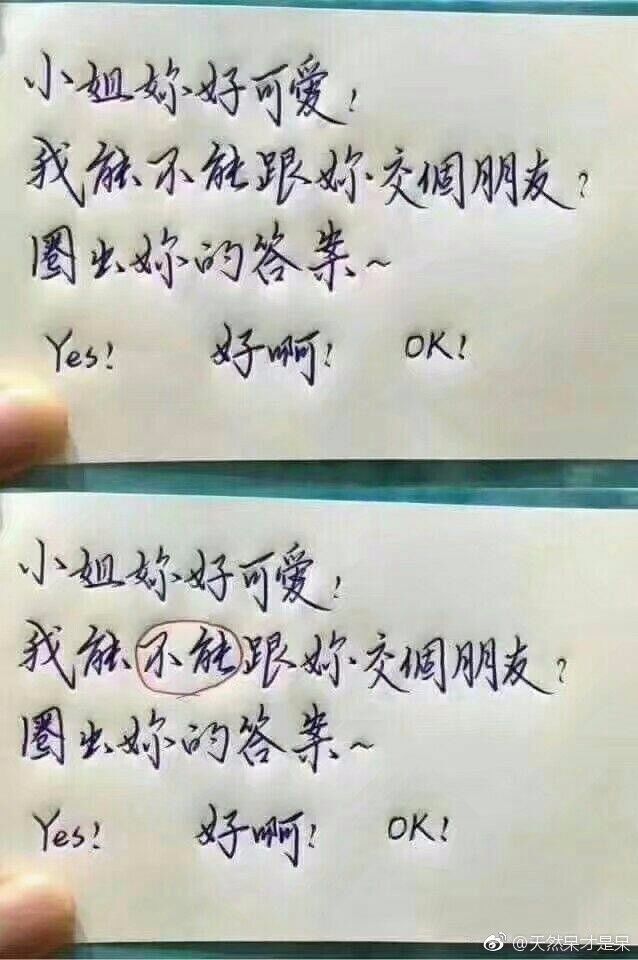 小姐妳好可爱!
我能不能跟妳交個朋友?
圈出妳的答案~
Yes! 好啊! OK!
小姐妳好可爱!
我能不能跟妳交個朋友?
圈出妳的答案~
Yes! 好啊! OK!
@天然呆才是呆